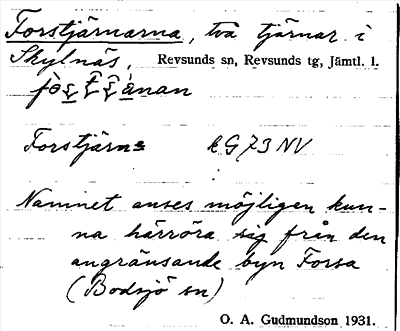 Forstjärnarna, två tjärnar i
Skylnäs, Revsunds sn, Revsunds tg, Jämtl. l.
Forstjärn= kG73NV
Namnet anses möjligen kun-
na härröra sig från den
angränsande byn Forsa
(Bodsjö sn)
O. A. Gudmundson 1931.